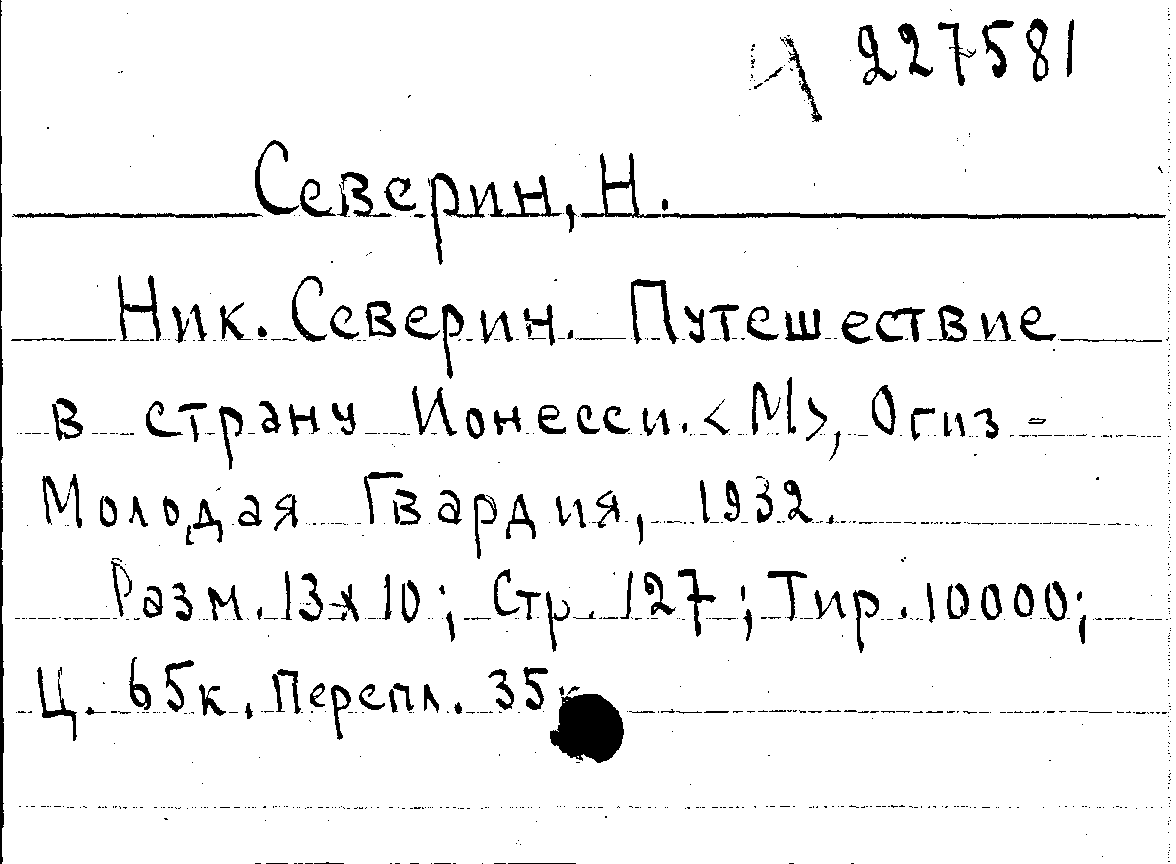 Ч 227581
Северин, Н.
Ник. Северин. Путешествие
в страну Ионесси. <М>, Огиз -
Молодая Гвардия, 1932.
Разм. 13х10; Стр. 127; Тир. 10000;
Ц. 65к. Перепл. 35к